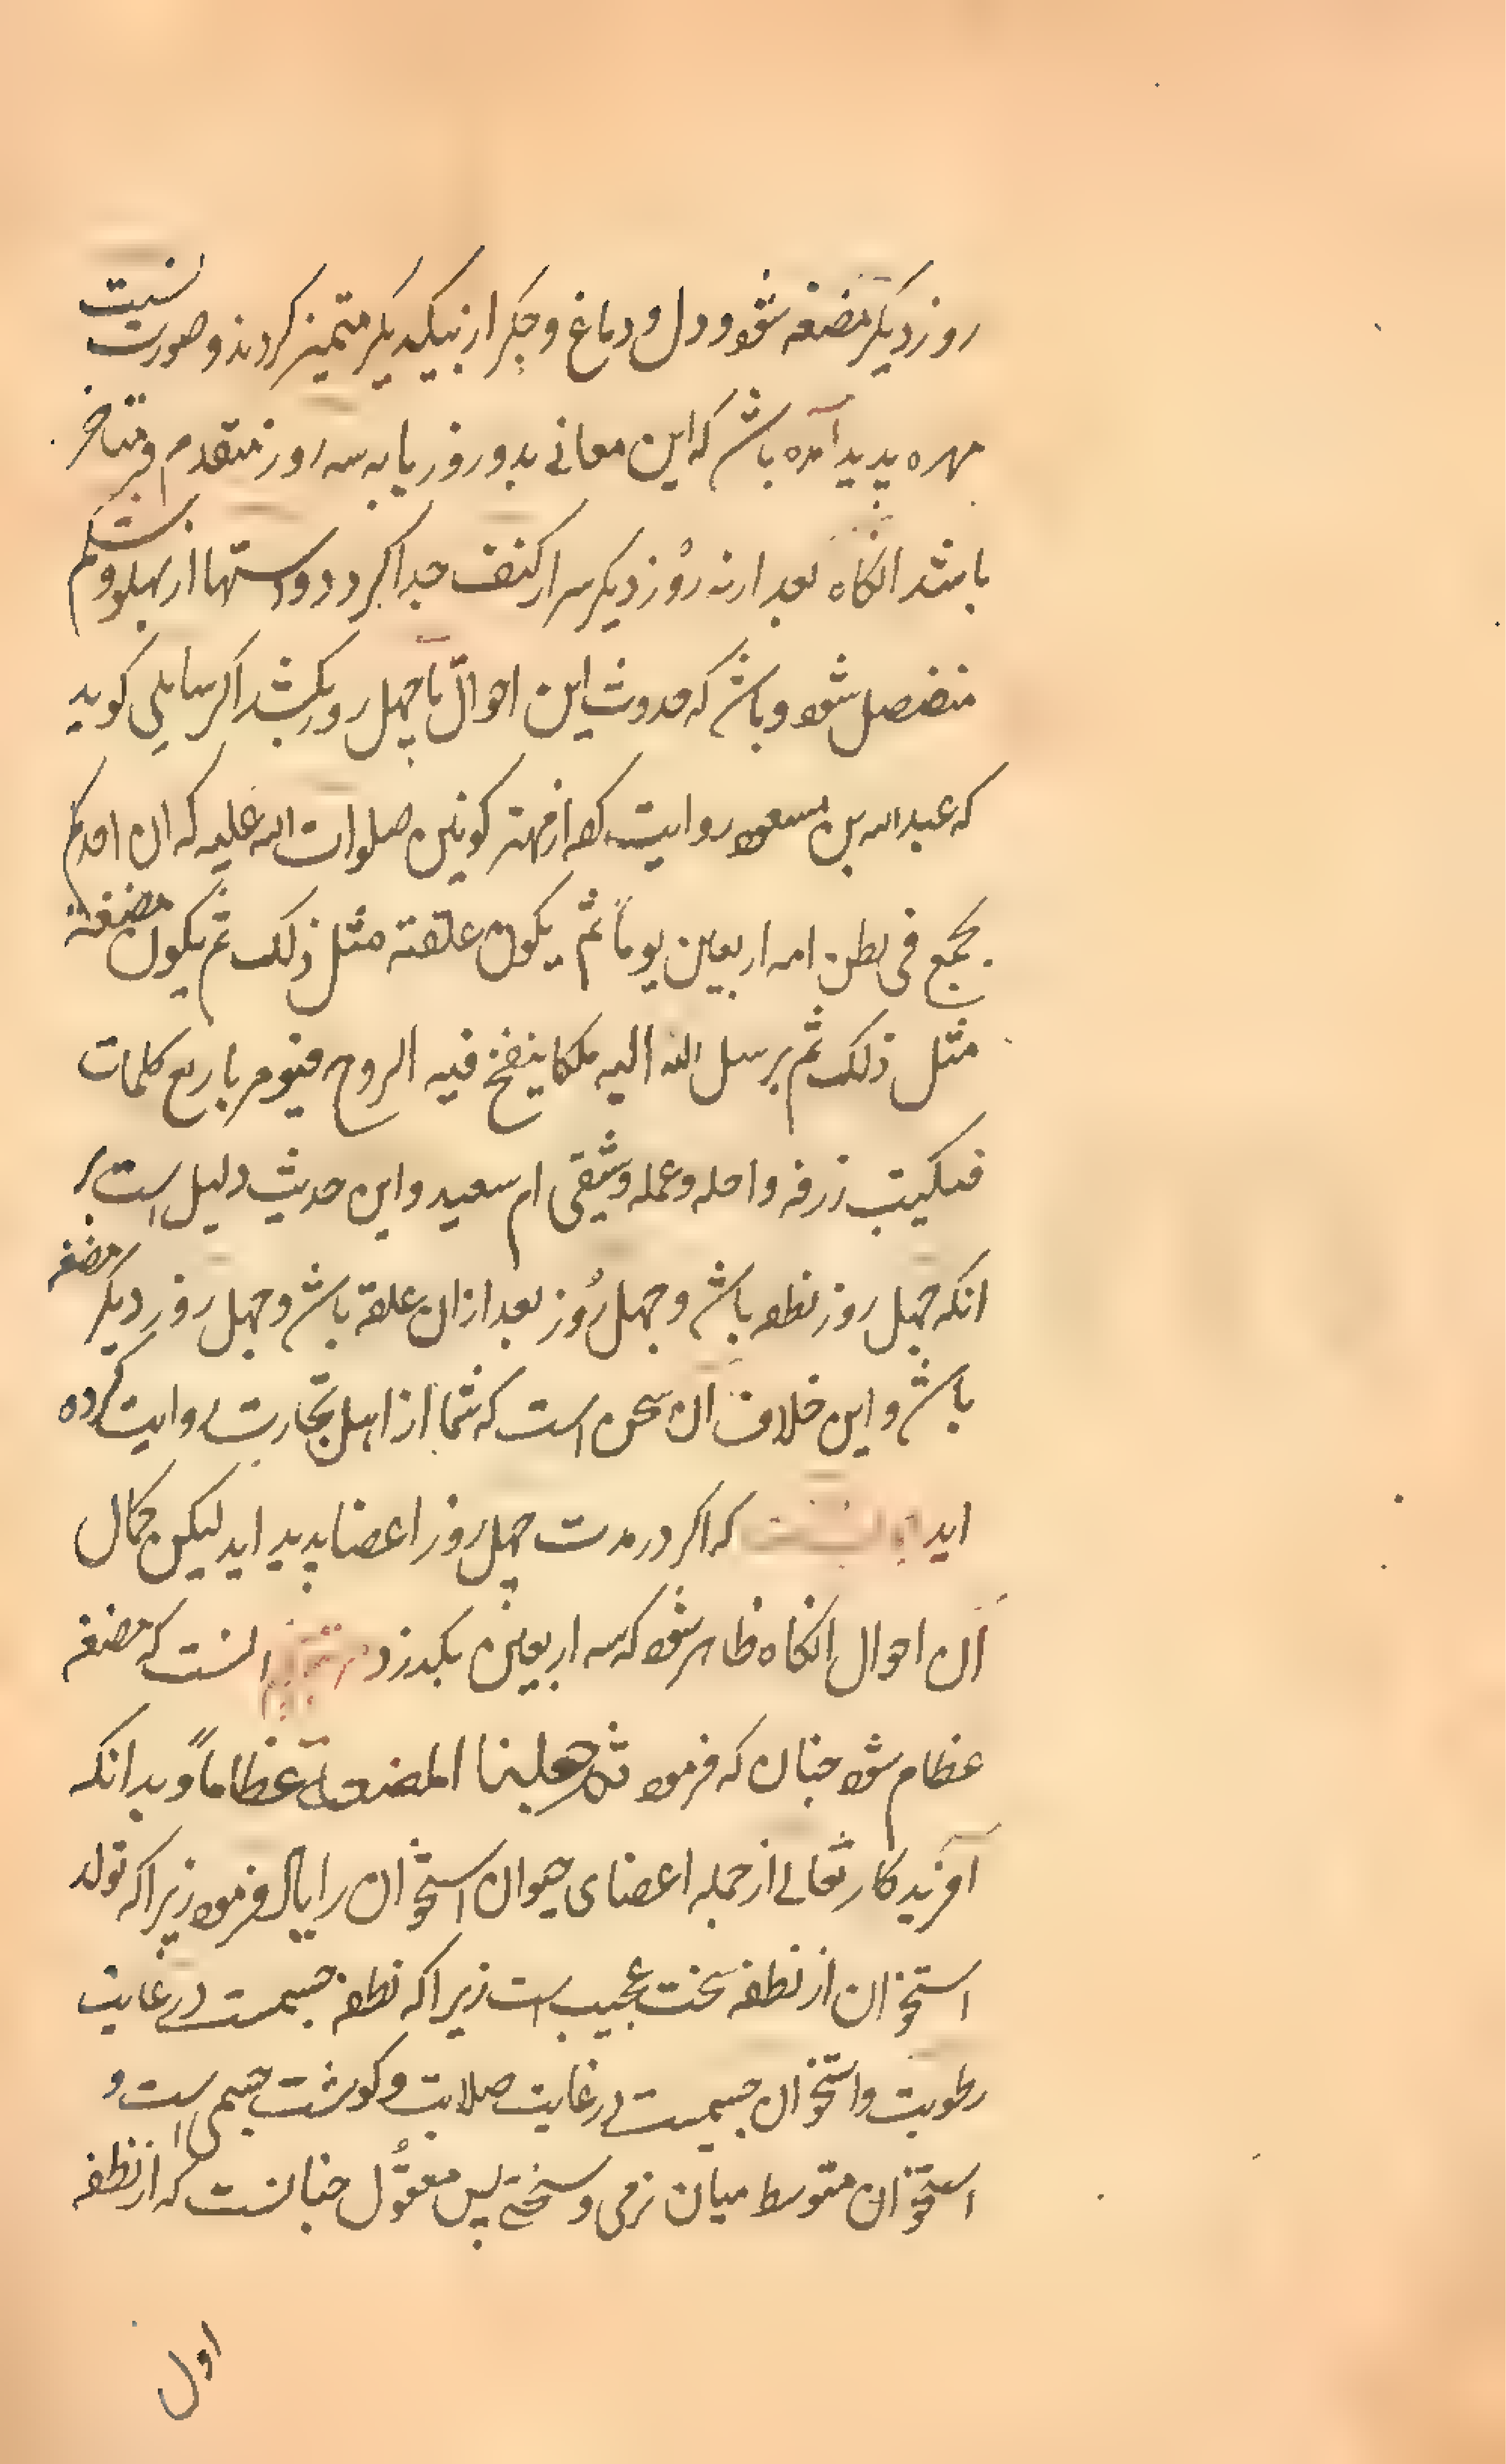 روز دیکر مضغه شود و دل و دماغ و جکر از یکدیکر متمیز کردند و صورت پشت
مهره پدید آمده باشد که این معانی بدو روز یا به سه روز متقدم و متاخر
باشد انکاه بعد از نه روز دیکر سر از کتف جدا کردد و دستها از پهلو و شکم
منفصل شود و باشد که حدوث این احوال تا چهل روز بکشد اکر سایلی کوید
که عبد الله بن مسعود روایت کرد از مهتر کونین صلوات الله علیه که ان احدکم
یجمع فی بطن امه اربعین یوماً ثم یکون علقته مثل ذلک ثم یکون مضغة
مثل ذلک ثم یرسل الله الیه ملکا ینفخ فیه الروح فیومر باربع کلمات
فیکتب رزقه واجله وعمله وشقی ام سعید و این حدیث دلیل است بر
انکه چهل روز نطفه باشد و چهل رُوز بعد ازان علقه باشد و چهل روز دیکر مضغه
باشد و این خلاف آن سخن است که شما از اهل تجارت روایت کرده
اید که اکر در مدت چهل روز اعضا پدید اید لیکن کمال
آن احوال انکاه ظاهر شود که سه اربعین بکذرد انست که مضغه
عظام شود چنان که فرمود ثم جعلنا المضغة عظاماً و بدانکه
آفریدکار تعالی از جمله اعضای حیوان استخوان را یاد فرمود زیرا که تولد
استخوان از نطفه سخت عجیب است زیرا که نطفه جسمیست در غایت
رطوبت و استخوان جسمیست در غایت صلابت و کوشت جسم است و
استخوان متوسط میان نرمی و سختی پس معقُول چنانست که از نطفه
اول